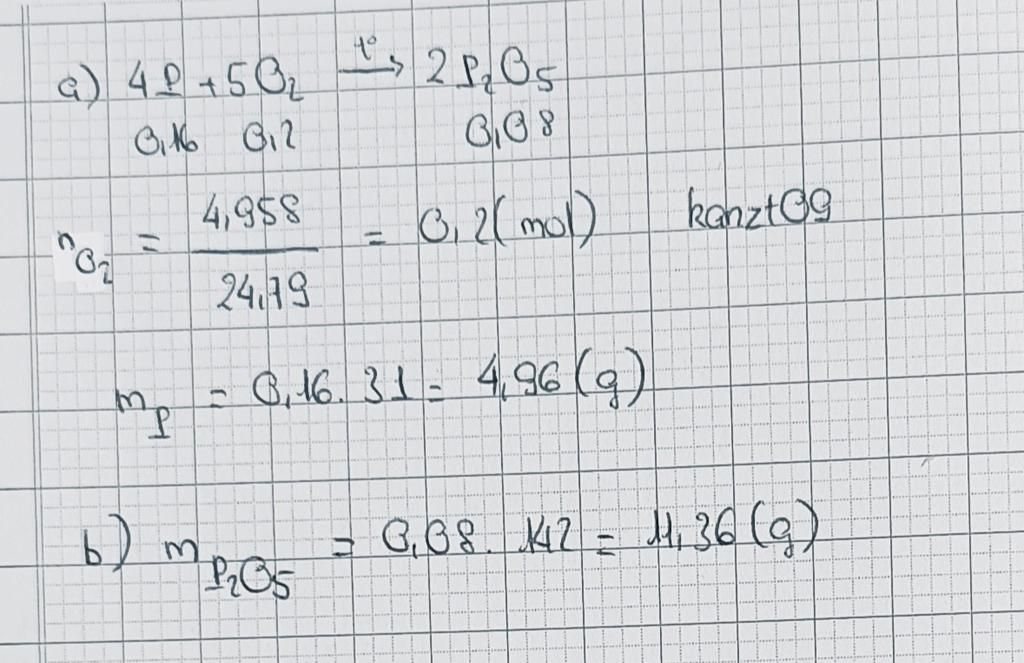 a) 4P + 5O₂ t°→ 2P₂O₅
0,16 0,2 0,08
n_O₂ = 4,958 / 24,79 = 0,2 (mol) kanzt09
m_P = 0,16 . 31 = 4,96 (g)
b) m_P₂O₅ = 0,08 . 142 = 11,36 (g)